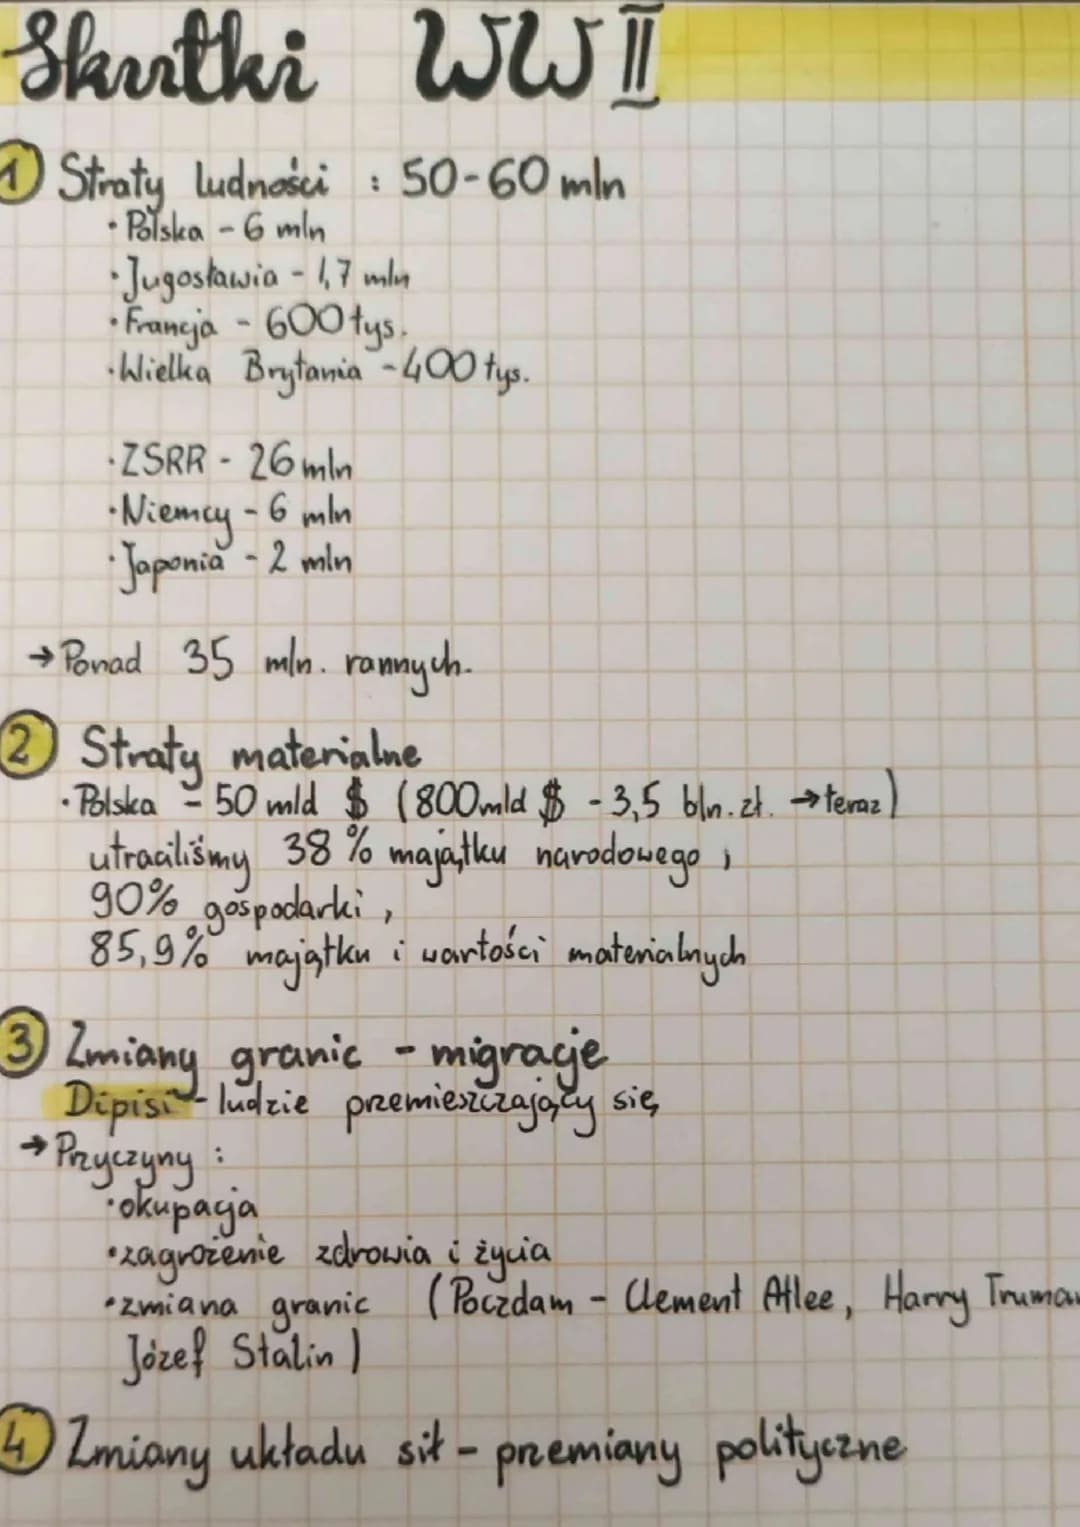 Skutki WW II
1 Straty ludności : 50-60 mln
• Polska - 6 mln
• Jugosławia - 1,7 mln
• Francja - 600 tys.
• Wielka Brytania - 400 tys.
• ZSRR - 26 mln
• Niemcy - 6 mln
• Japonia - 2 mln
→ Ponad 35 mln. rannych.
2 Straty materialne
• Polska - 50 mld $ (800 mld $ - 3,5 bln. zł. → teraz)
utraciliśmy 38% majątku narodowego,
90% gospodarki,
85,9% majątku i wartości materialnych
3 Zmiany granic - migracje
Dipisi - ludzie przemieszczający się
→ Przyczyny :
• okupacja
• zagrożenie zdrowia i życia
• zmiana granic (Poczdam - Clement Atlee, Harry Truman
Józef Stalin)
4 Zmiany układu sił - przemiany polityczne